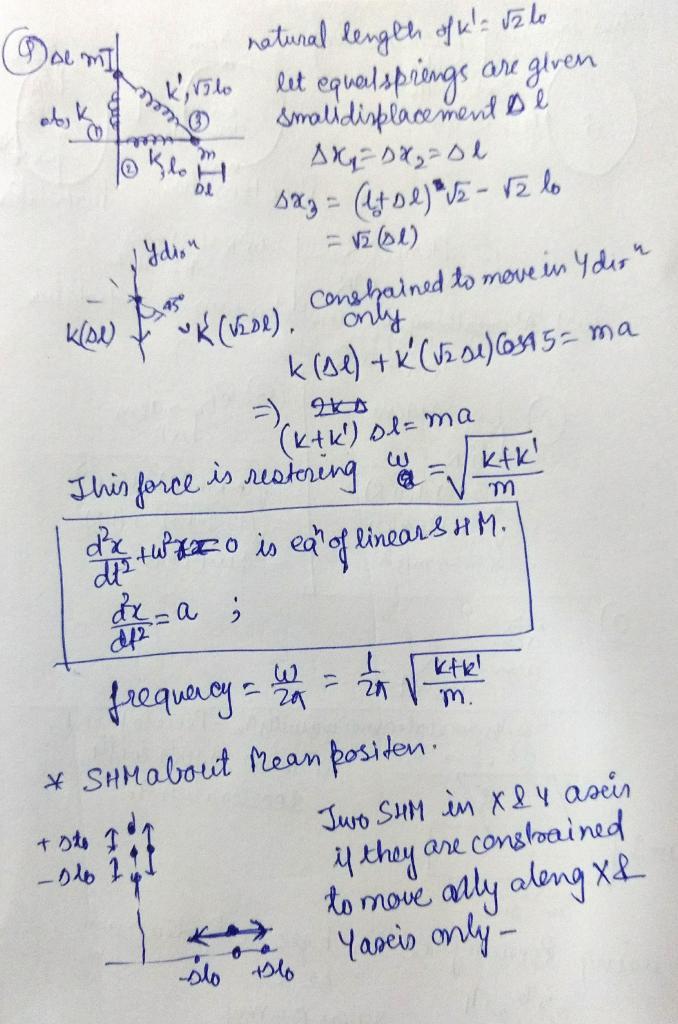 natural length of k' = √2 lo
Δl m
k', √2lo
let equal springs are given
small displacement Δl
k
①
③
② k, lo
m
Δl
Δx₁ = Δx₂ = Δl
Δx₃ = (lo + Δl) √2 - √2 lo
= √2 (Δl)
Y dirⁿ
45°
k(Δl)
k' (√2Δl).
constrained to move in Y dirⁿ
only
k (Δl) + k' (√2 Δl) Cos45 = ma
⇒
(k+k') Δl = ma
This force is restoring ω = √ k+k' / m
d²x/dt² + ω²x = 0 is eqⁿ of linear SHM.
d²x/dt² = a ;
frequency = ω/2π = 1/2π √ k+k' / m.
* SHM about Mean positen.
Two SHM in X & Y axis
+Δlo
if they are constrained
-Δlo
to move only along X &
Y axis only -
-Δlo +Δlo